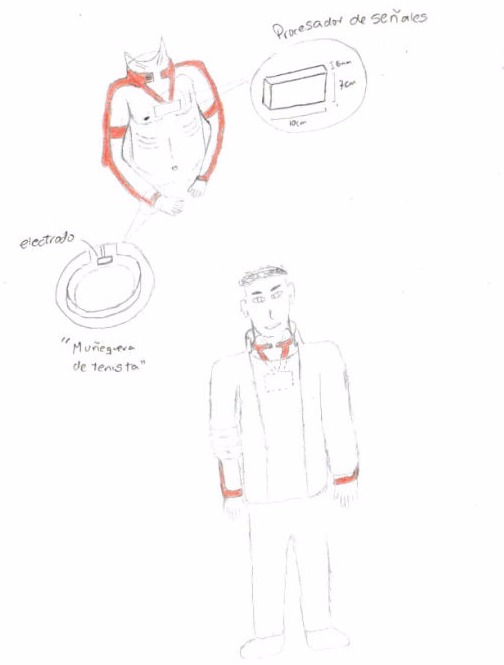 Procesador de señales
6mm
7cm
10cm
electrodo
"Muñequera
de tenista"